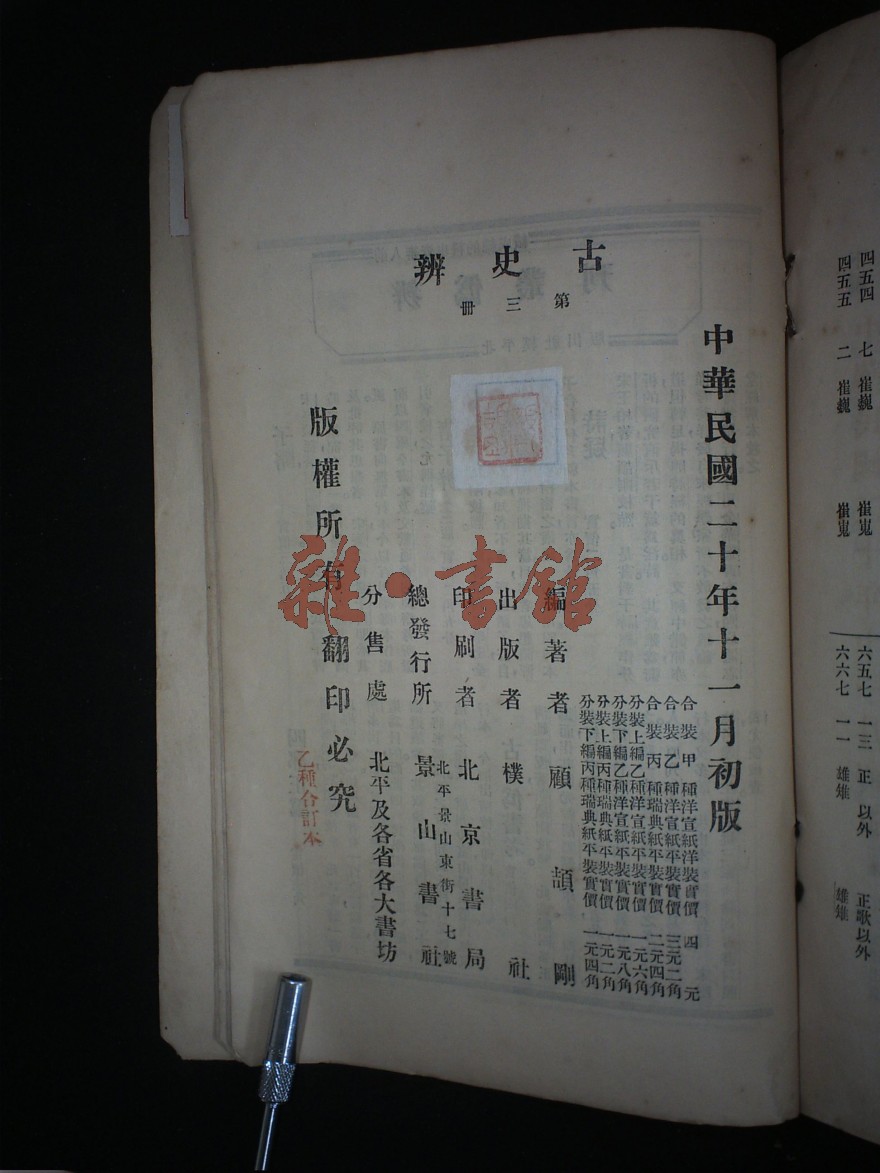 古史辨
第三冊
中華民國二十年十一月初版
合裝甲種洋宣紙洋裝實價 四元
合裝乙種洋宣紙平裝實價 三元二角
合裝丙種瑞典紙平裝實價 二元四角
分裝上編乙種洋宣紙平裝實價 一元六角
分裝下編乙種洋宣紙平裝實價 一元八角
分裝上編丙種瑞典紙平裝實價 一元二角
分裝下編丙種瑞典紙平裝實價 一元四角
編著者 顧頡剛
出版者 樸社
印刷者 北京書局
北平景山東街十七號
總發行所 景山書社
分售處 北平及各省各大書坊
版權所有 翻印必究
乙種合訂本
雜·書館
四五四 七 崔巍 崔嵬
四五五 二 崔巍 崔嵬
六五七 一三 正 以外 正歌以外
六六七 一一 雄雉 雄雉